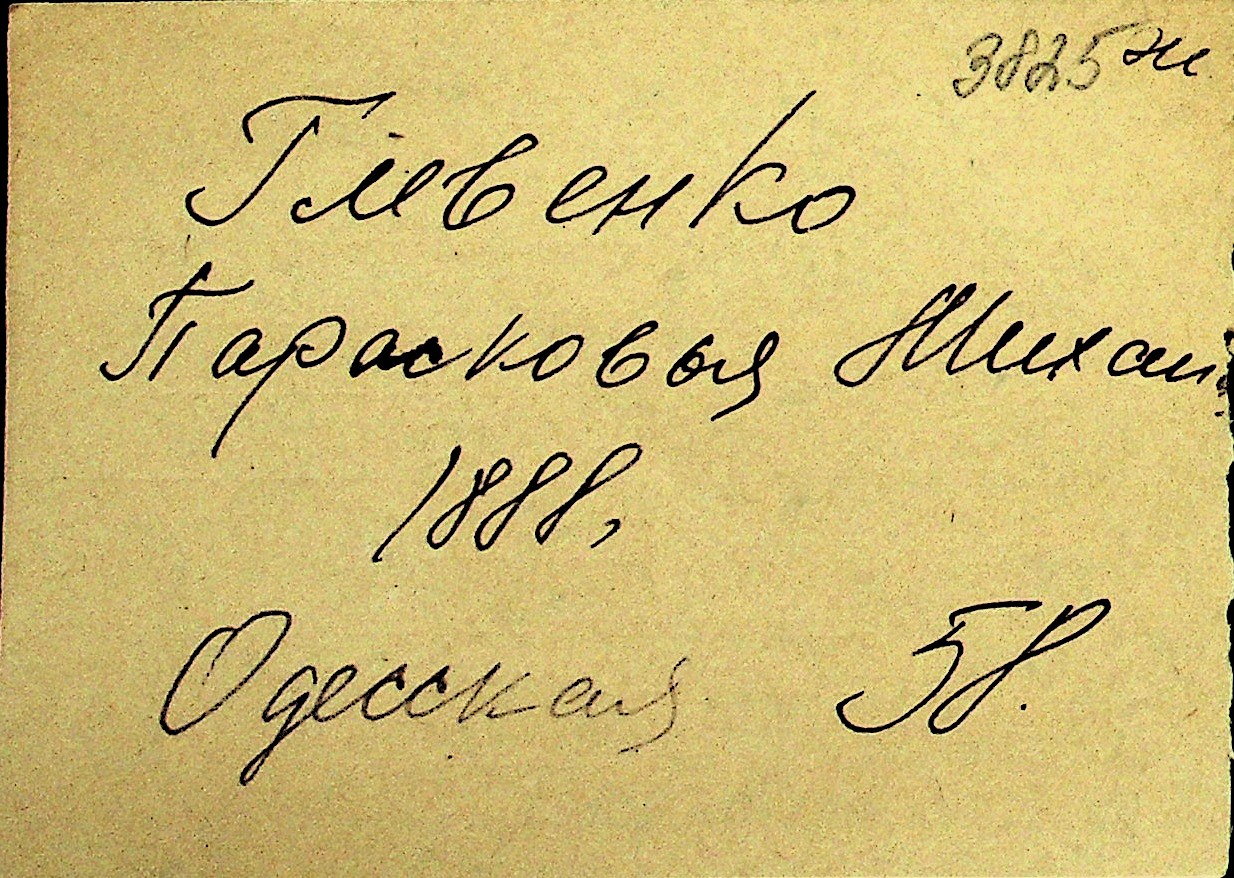 3825 ж
Глевенко
Парасковья Михаи
1888,
Одесская 58.